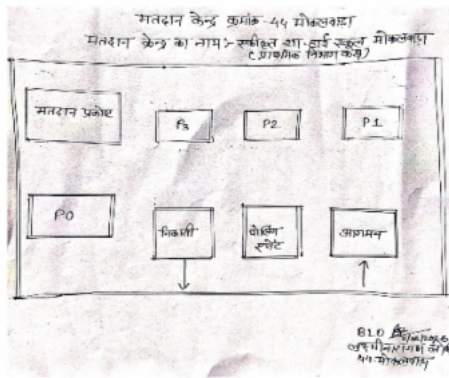 मतदान केन्द्र क्रमांक - 44 मोकलवाड़ा
मतदान केन्द्र का नाम :- एकीकृत शा. हाई स्कूल मोकलवाड़ा
(प्राथमिक विभाग कक्ष)
मतदान प्रकोष्ट
P3
P2
P1
P0
निकासी
पोलिंग एजेंट
आगमन
BLO
44 मोकलवाड़ा